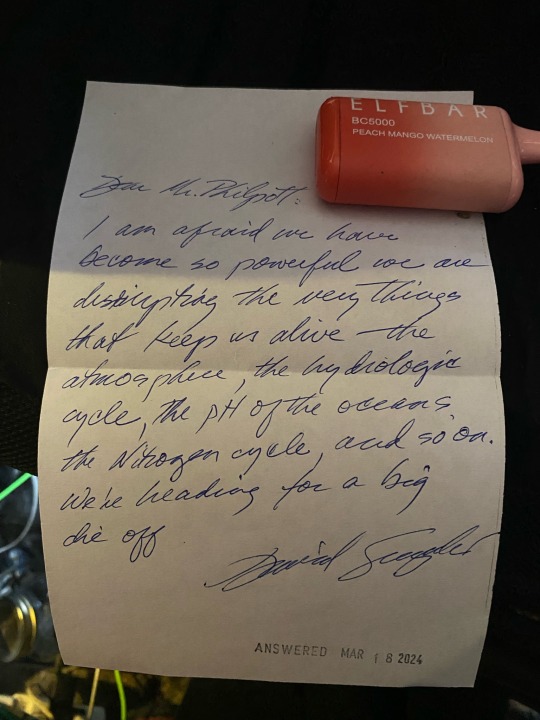 ELFBAR
BC5000
PEACH MANGO WATERMELON
Dear Mr. Philpott:
I am afraid we have
become so powerful we are
disrupting the very things
that keep us alive – the
atmosphere, the hydrologic
cycle, the pH of the oceans
the Nitrogen cycle, and so on.
We're heading for a big
die off
David
ANSWERED MAR 18 2024